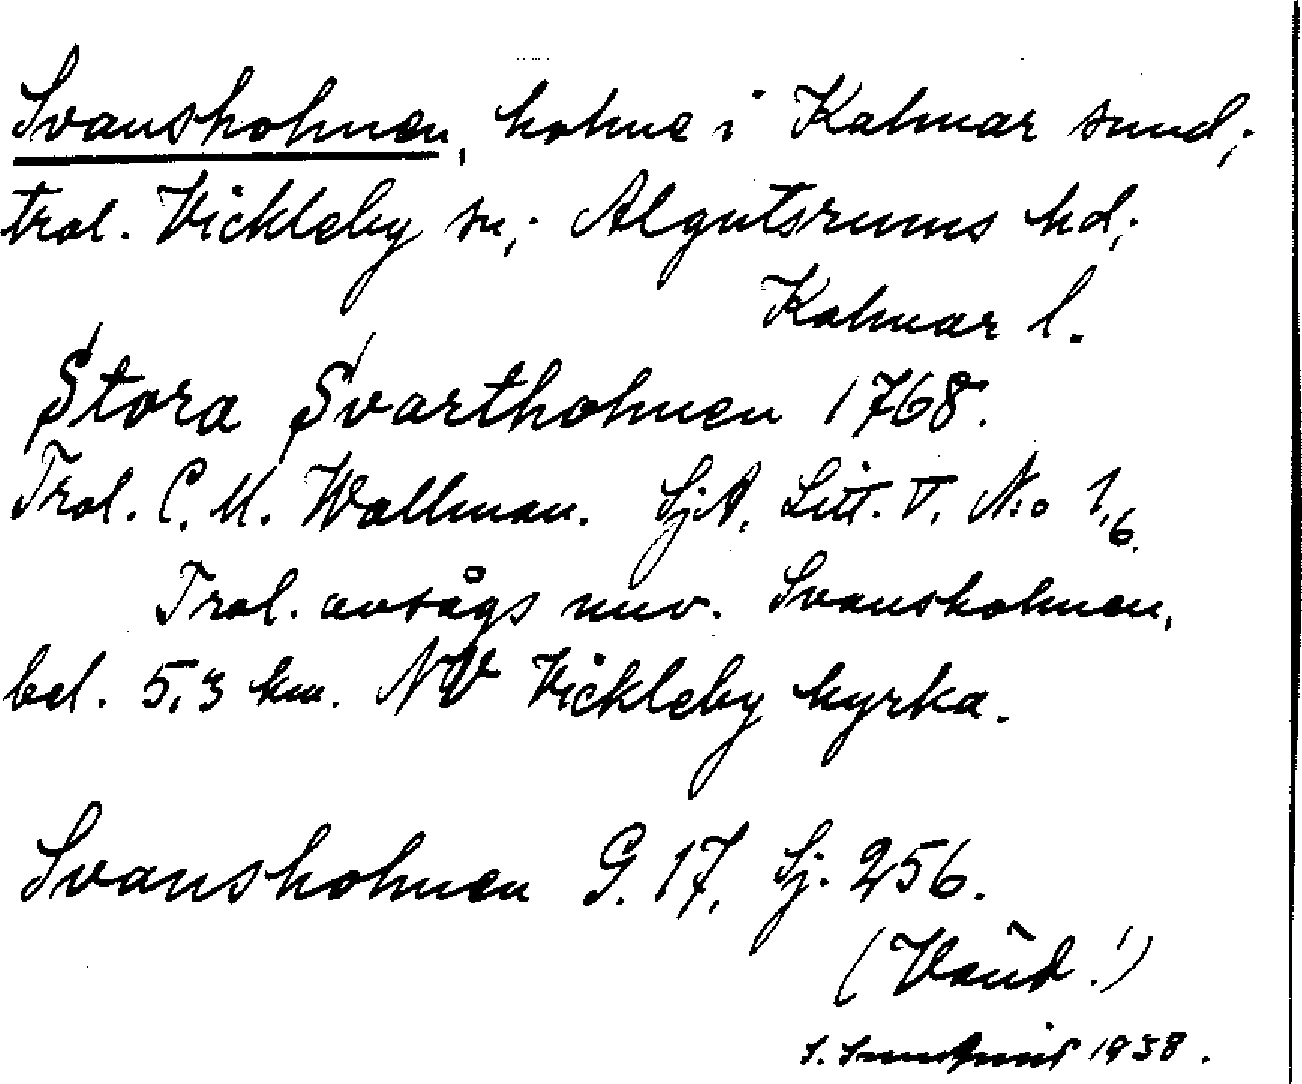 Svansholmen, holme i Kalmar sund;
trol. Vickleby sn; Algutsrums hd;
Kalmar l.
Stora Svartholmen 1768.
Trol. C. M. Wallman. SjA, Litt. V. N:o 1,6.
Trol. avsågs nuv. Svansholmen,
bel. 5,3 km. NV Vickleby kyrka.
Svansholmen G. 17, Sj. 256.
(Vänd!)
S. 1938.